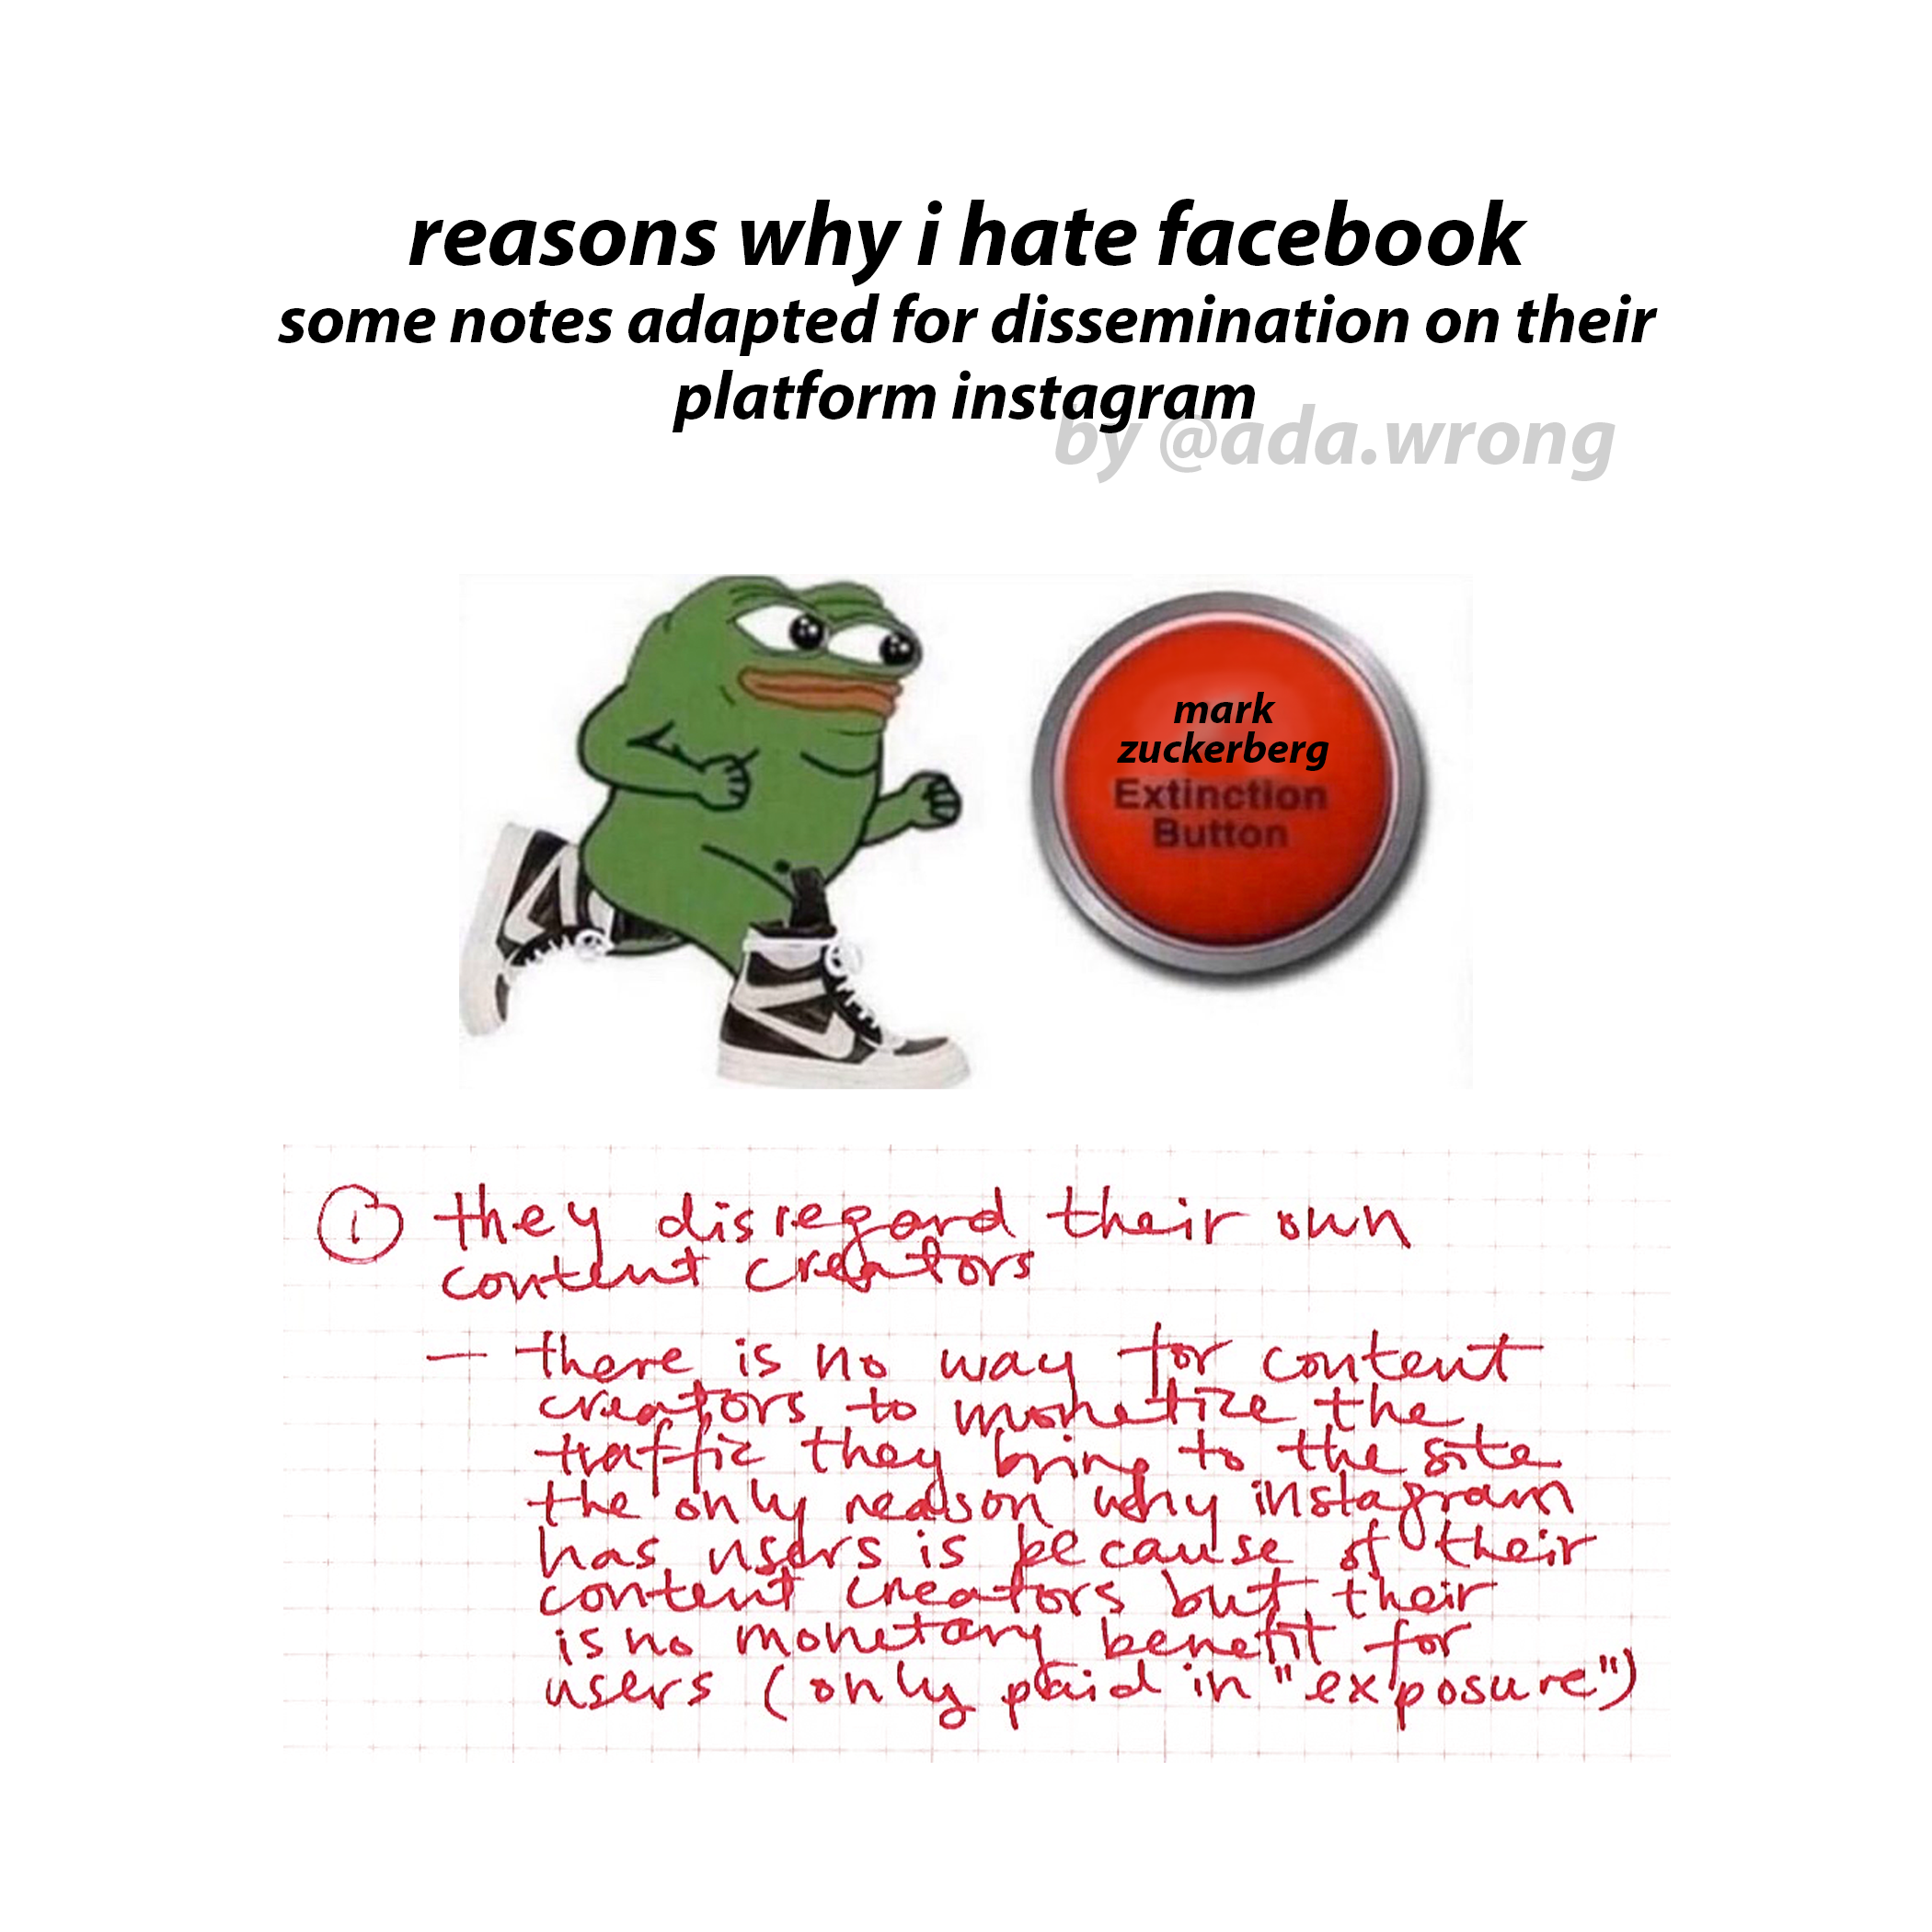 reasons why i hate facebook
some notes adapted for dissemination on their
platform instagram
by @ada.wrong
mark
zuckerberg
Extinction
Button
1 they disregard their own
content creators
- there is no way for content
creators to monetize the
traffic they bring to the site
the only reason why instagram
has users is because of their
content creators but their
is no monetary benefit for
users (only paid in "exposure")